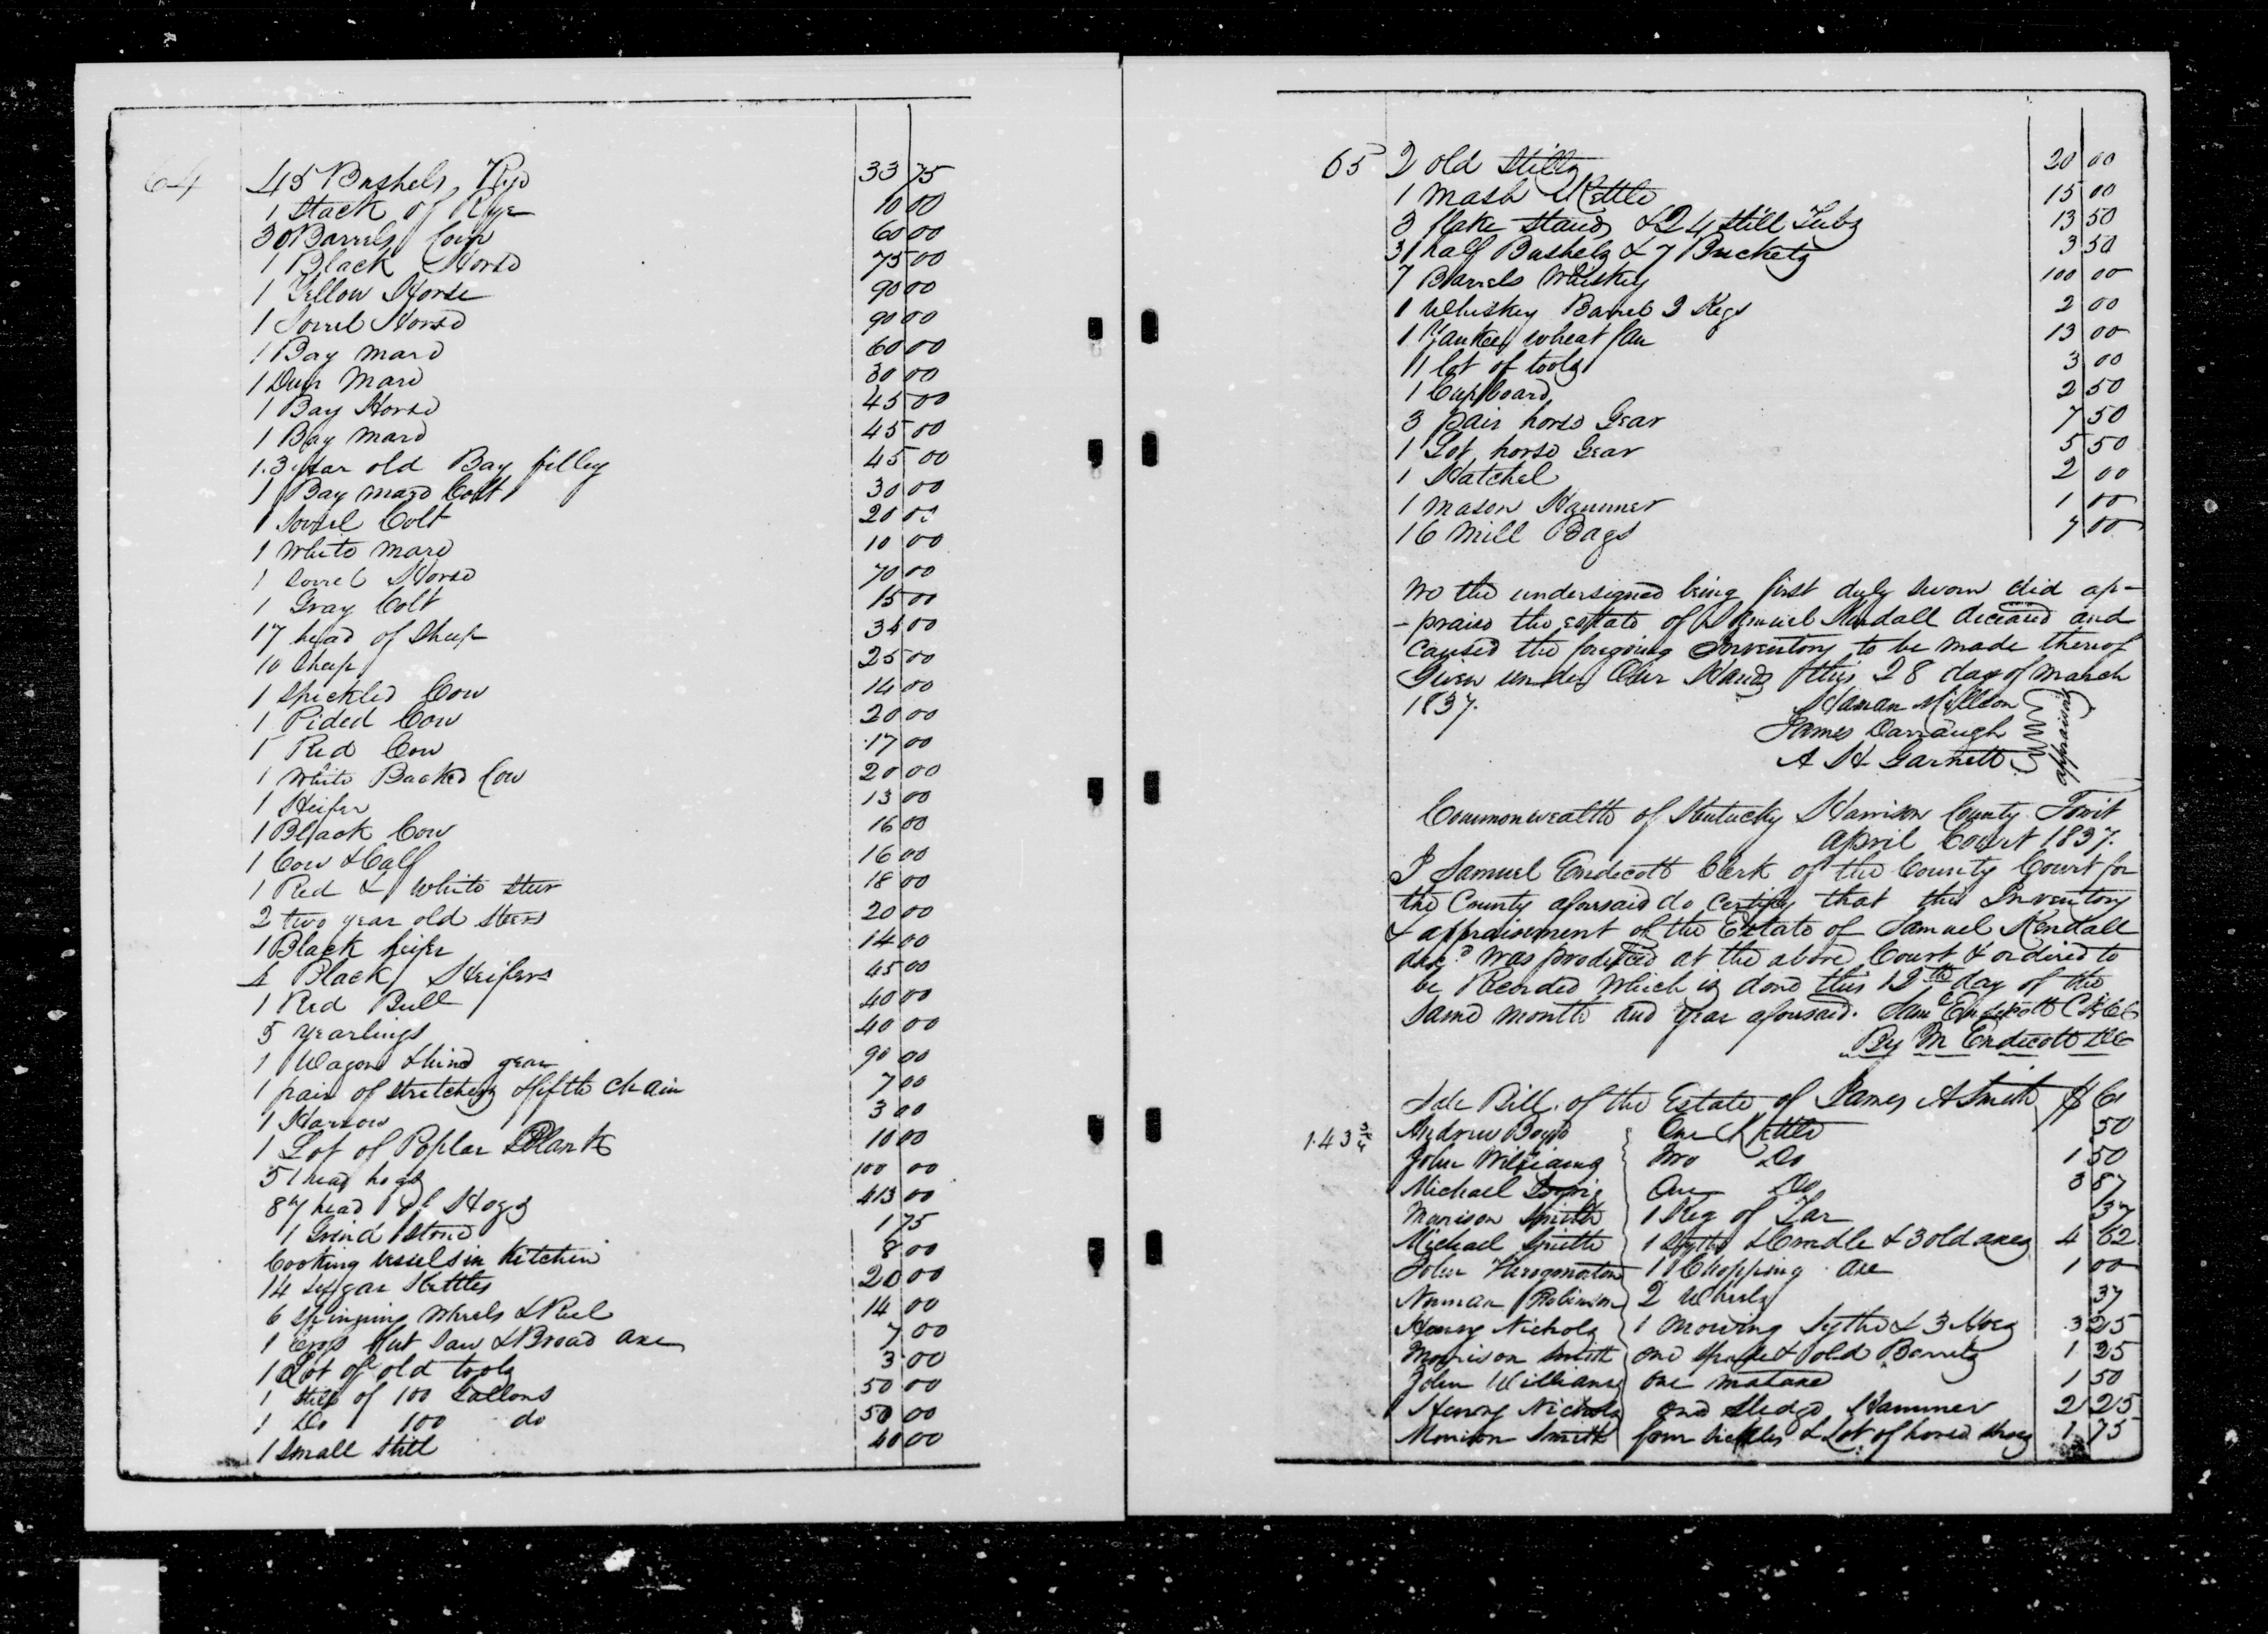 64
45 Bushels Rye 33 75
1 Stack of Rye 10 00
30 Barrels Corn 60 00
1 Black Horse 75 00
1 Yellow Horse 90 00
1 Sorrel Horse 90 00
1 Bay mare 60 00
1 Dun Mare 30 00
1 Bay Horse 45 00
1 Bay mare 45 00
1.3 year old Bay filley 45 00
1 Bay mare Colt 30 00
1 Sorrel Colt 20 00
1 White mare 10 00
1 Sorrel Horse 70 00
1 Gray Colt 15 00
17 head of Sheep 34 00
10 Sheep 25 00
1 Speckled Cow 14 00
1 Pided Cow 20 00
1 Red Cow 17 00
1 White Backed Cow 20 00
1 Heifer 13 00
1 Black Cow 16 00
1 Cow & Calf 16 00
1 Red & White Steer 18 00
2 two year old Steers 20 00
1 Black heifer 14 00
4 Black Heifers 45 00
1 Red Bull 40 00
5 Yearlings 40 00
1 Wagon & hind gear 90 00
1 pair of stretchers & fifth chain 7 00
1 Harrow 3 00
1 Lot of Poplar Plank 10 00
51 head hogs 100 00
87 head of Hogs 413 00
1 Grind Stone 1 75
Cooking vessels in Kitchen 8 00
14 Sugar Kettles 20 00
6 Spinning Wheels & Reel 14 00
1 Cross Cut Saw & Broad axe 7 00
1 Lot of old tools 3 00
1 Still of 100 Gallons 50 00
1 Do 100 do 50 00
1 Small Still 40 00
65
2 old Stills 20 00
1 Mash Kettle 15 00
3 flake stands & 24 still Tubs 13 50
3 half Bushels & 7 Buckets 3 50
7 Barrels Whiskey 100 00
1 Whiskey Barrel 2 Kegs 2 00
1 Yankee wheat fan 13 00
1 lot of tools 3 00
1 Cupboard 2 50
3 pair horse Gear 7 50
1 Lot horse Gear 5 50
1 Hatchel 2 00
1 mason Hammer 1 00
16 Mill Bags 7 00
We the undersigned being first duly sworn did ap-
-praise the estate of Samuel Kendall deceased and
caused the foregoing Inventory to be made thereof
Given under Our Hands this 28 day of March
1837.
James Darraugh
A H Garnett
appraisers
Commonwealth of Kentucky Harrison County Towit
April Court 1837.
I Samuel Endicott Clerk of the County Court for
the County aforesaid do certify that this Inventory
& appraisement of the Estate of Samuel Kendall
decd was produced at the above Court & ordered to
be Recorded which is done this 12th day of the
same month and year aforesaid. Saml Endicott
By M Endicott DC
Sale Bill of the Estate of James A Smith $ Cts
1.43 3/4
Andrew Boyd One Kettle 50
John Williams Two Do 1 50
Michael One Do 3 87
Morrison Smith 1 Keg of Tar 37
Michael Smith 1 Sythe & Cradle & 3 old axes 4 62
John 1 Chopping axe 1 00
Norman Robinson 2 Wheels 37
Henry Nichols 1 mowing Sythe & 3 Hoes 3 25
Morrison Smith one spade & old Barrels 1 25
John Williams one mataxe 1 50
Henry Nichols one Sledge Hammer 2 25
Morrison Smith four Sickles & Lot of horse shoes 1 75